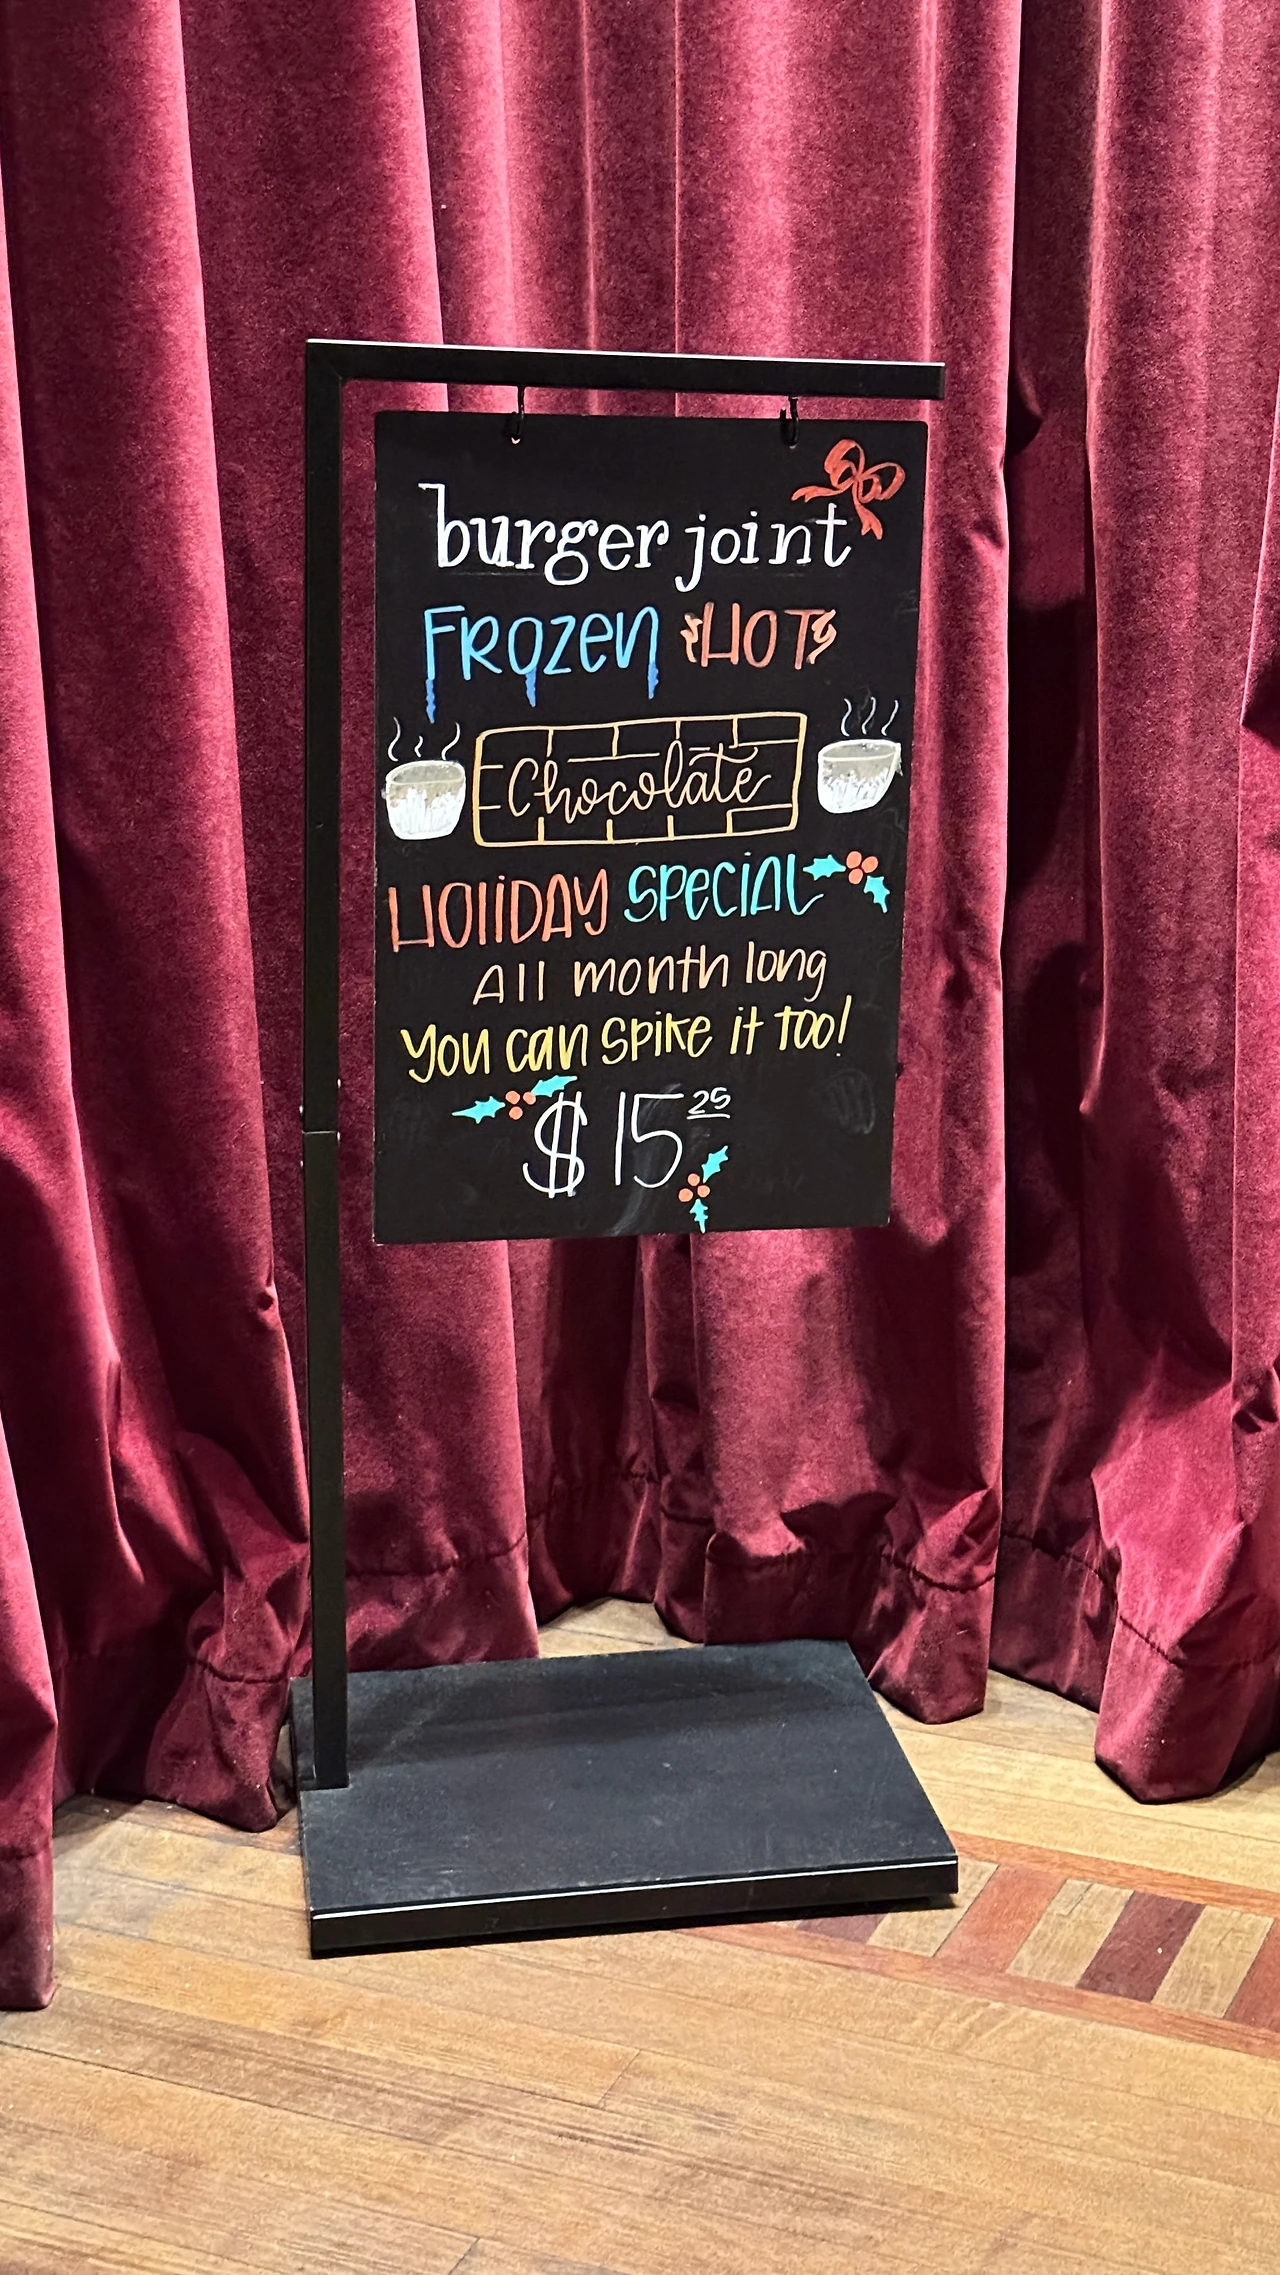 burger joint
FROZEN HOT
Chocolate
HOLIDAY SPECIAL
All month long
You can spike it too!
$15 25